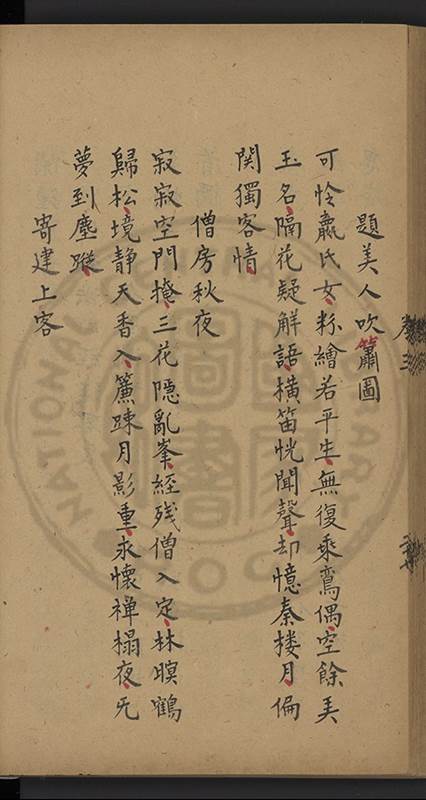 題美人吹簫圖
可怜嬴氏女粉繪若平生無復乘鸞偶空餘美
玉名隔花疑解語横笛恍聞聲却憶秦搂月偏
関獨客情
僧房秋夜
寂寂空門掩三花隠亂峯經残僧入定林暝鶴
歸松境靜天香入簾踈月影重永懷禅榻夜旡
夢到塵蹤
寄建上客